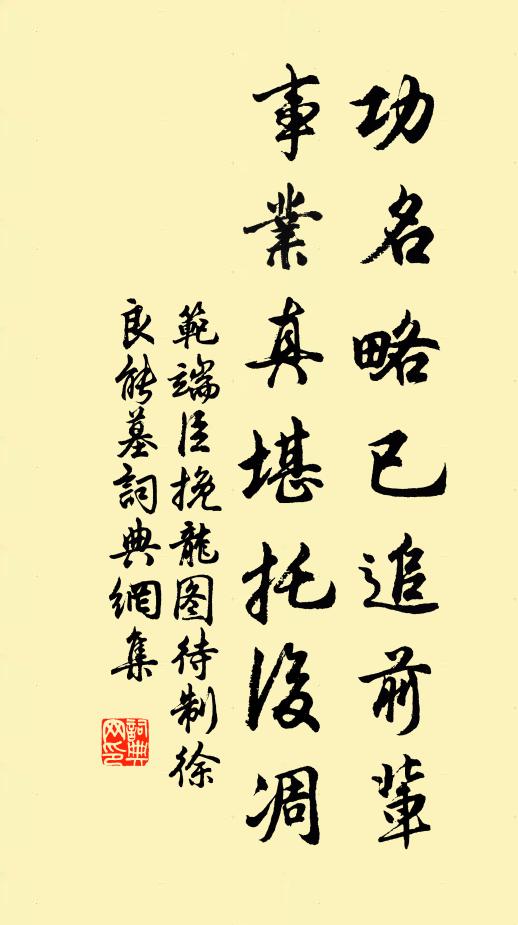 功名略已追前輩
事業真堪托後凋
範端臣挽龍图待制徐
良能墓詞典網集
詞典網印